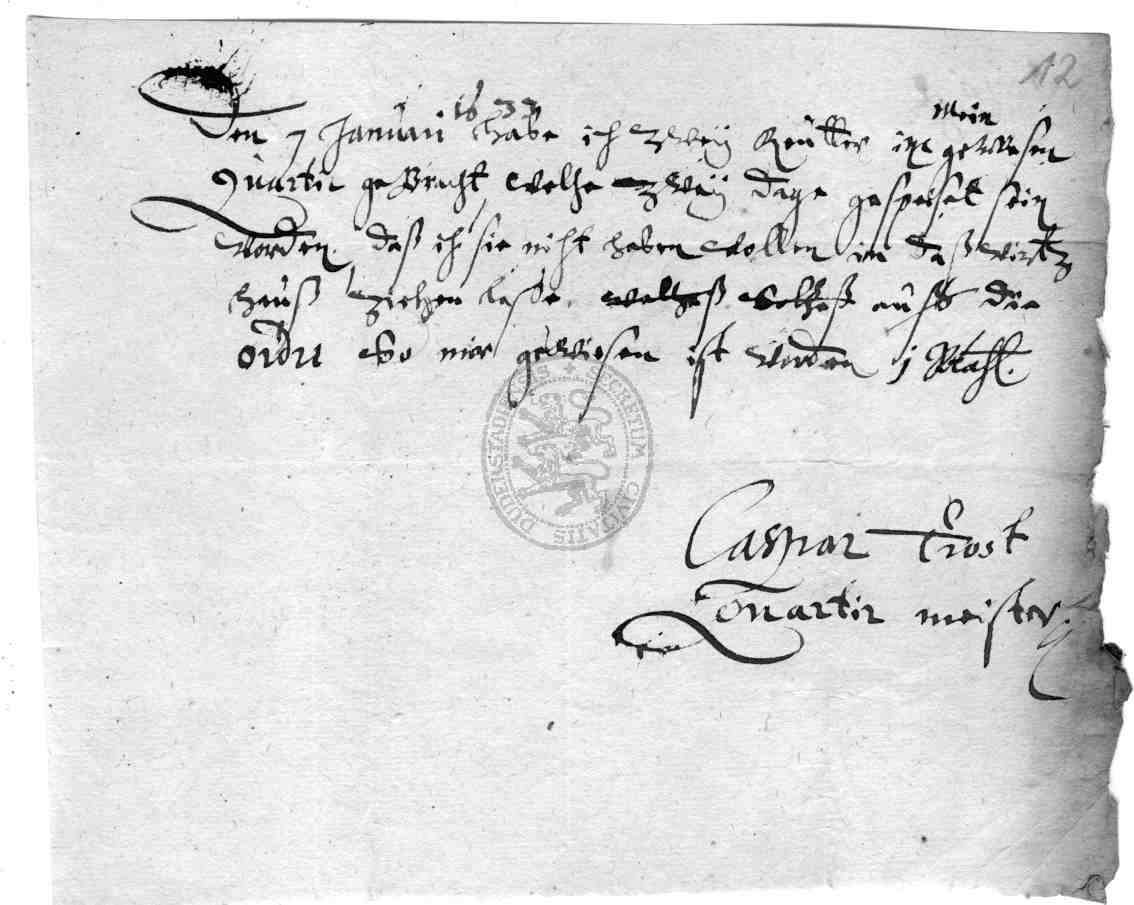 12
1633 Mein
Den 7 Januari habe ich zweÿ Reütter im gewesen
Quartir gebracht welche zweÿ dage gespeiset sein
worden. daß ich sie nicht haben wollen in daß wirtz
hauß ziehen lasse. welcheß Solcheß auff die
ordri So mir gewiesen ist worden j Mahl.
SECRETUM CIVITATIS DUDERSTADENSIS
Caspar Trost
Quartir meister